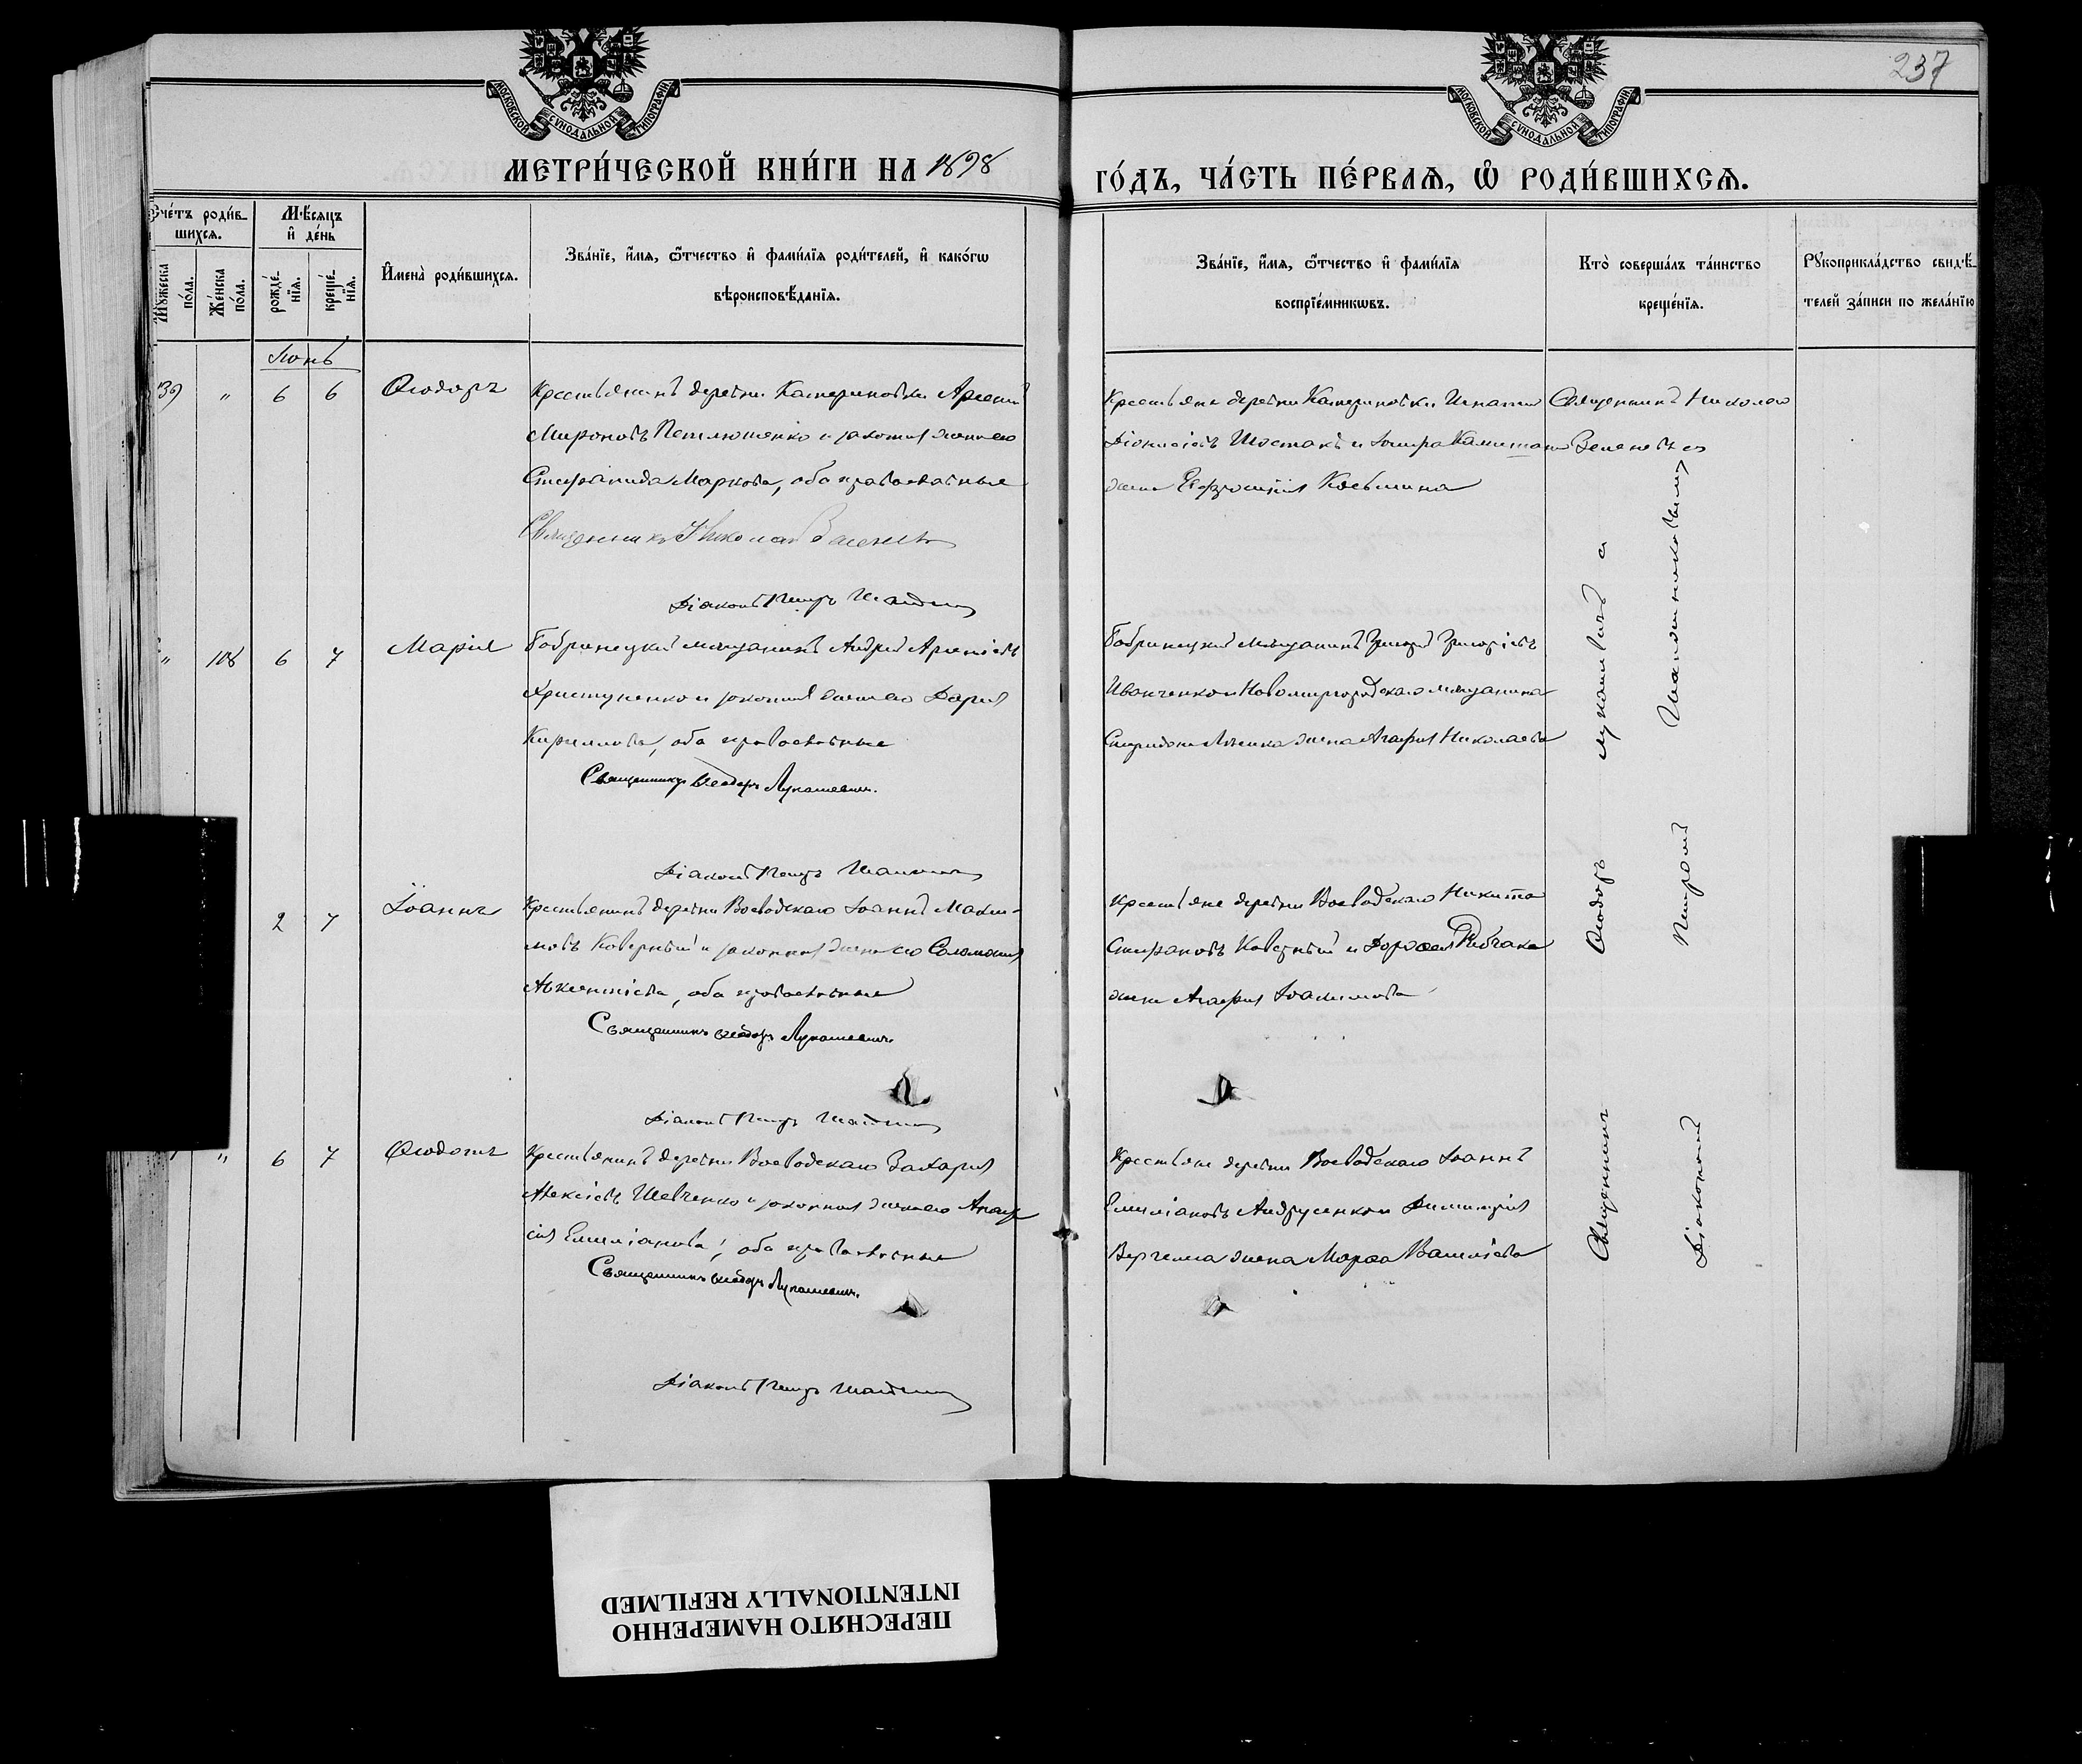 237
МОСКОВСКОЙ СУНОДАЛЬНОЙ ТИПОГРАФІИ
МОСКОВСКОЙ СУНОДАЛЬНОЙ ТИПОГРАФІИ
МЕТРИ́ЧЕСКОЙ КНИ́ГИ НА 1898
ГО́ДЪ, ЧА́СТЬ ПЕ́РВАѦ, Ѡ РОДИ́ВШИХСѦ.
Счетъ роди́в-
шихсѧ.
Мѣсѧцъ
и де́нь
Мꙋжеска
по́ла.
Же́нска
по́ла.
рожде́-
нїѧ.
креще́-
нїѧ.
Имена̀ роди́вшихсѧ.
Зва́нїе, и́мѧ, ѻ́тчество и фами́лїѧ роди́телей, и како́гѡ
вѣроисповѣ́данїѧ.
Зва́нїе, и́мѧ, ѻ́тчество и фами́лїѧ
воспрїе́мникѡвъ.
Кто̀ соверша́лъ та́инство
креще́нїѧ.
Рꙋкоприкла́дство свидѣ́-
телей за́писи по жела́нїю
Іюнь
39 " 6 6 Ѳеодоръ
Крестьянинъ деревни Катериновки Арсеній
Мироновъ Петлюшенко и законная жена его
Стефанида Маркова, оба православные
Священникъ Николай
Діаконъ Петръ
Крестьяне деревни Катериновки Игнатій
Діонисіевъ Шостакъ и
жена Евфросинія Косьмина
Священникъ Николай
" 108 6 7 Марія
Бобринецкій мѣщанинъ Андрей Арсеніевъ
Христуненко и законная жена его Дарія
Кириллова, оба православные
Священникъ Ѳеодоръ Лукашевичъ.
Діаконъ Петръ
Бобринецкій мѣщанинъ Григорій Григоріевъ
Иванченко и Новомиргородскаго мѣщанина
Спиридона жена Агафія Николаева
2 7 Іоаннъ
Крестьянинъ деревни Воеводскаго Іоаннъ Макси-
мовъ Коверный и законная жена его Соломонія
Авксентіева, оба православные
Священникъ Ѳеодоръ Лукашевичъ.
Діаконъ Петръ
Крестьяне деревни Воеводскаго Никита
Стефановъ Коверный и Дороѳея
жена Агафія Іоакимова
" 6 7 Ѳеодотъ
Крестьянинъ деревни Воеводскаго Захарія
Алексіевъ Шевченко и законная жена его Агаф-
ія Емиліанова, оба православные
Священникъ Ѳеодоръ Лукашевичъ.
Діаконъ Петръ
Крестьяне деревни Воеводскаго Іоаннъ
Емиліановъ Андрусенко и Димитрія
жена Марѳа Василіева
Священникъ Ѳеодоръ Лукашевичъ съ
Діакономъ Петромъ
ПЕРЕСНЯТО НАМЕРЕННО
INTENTIONALLY REFILMED